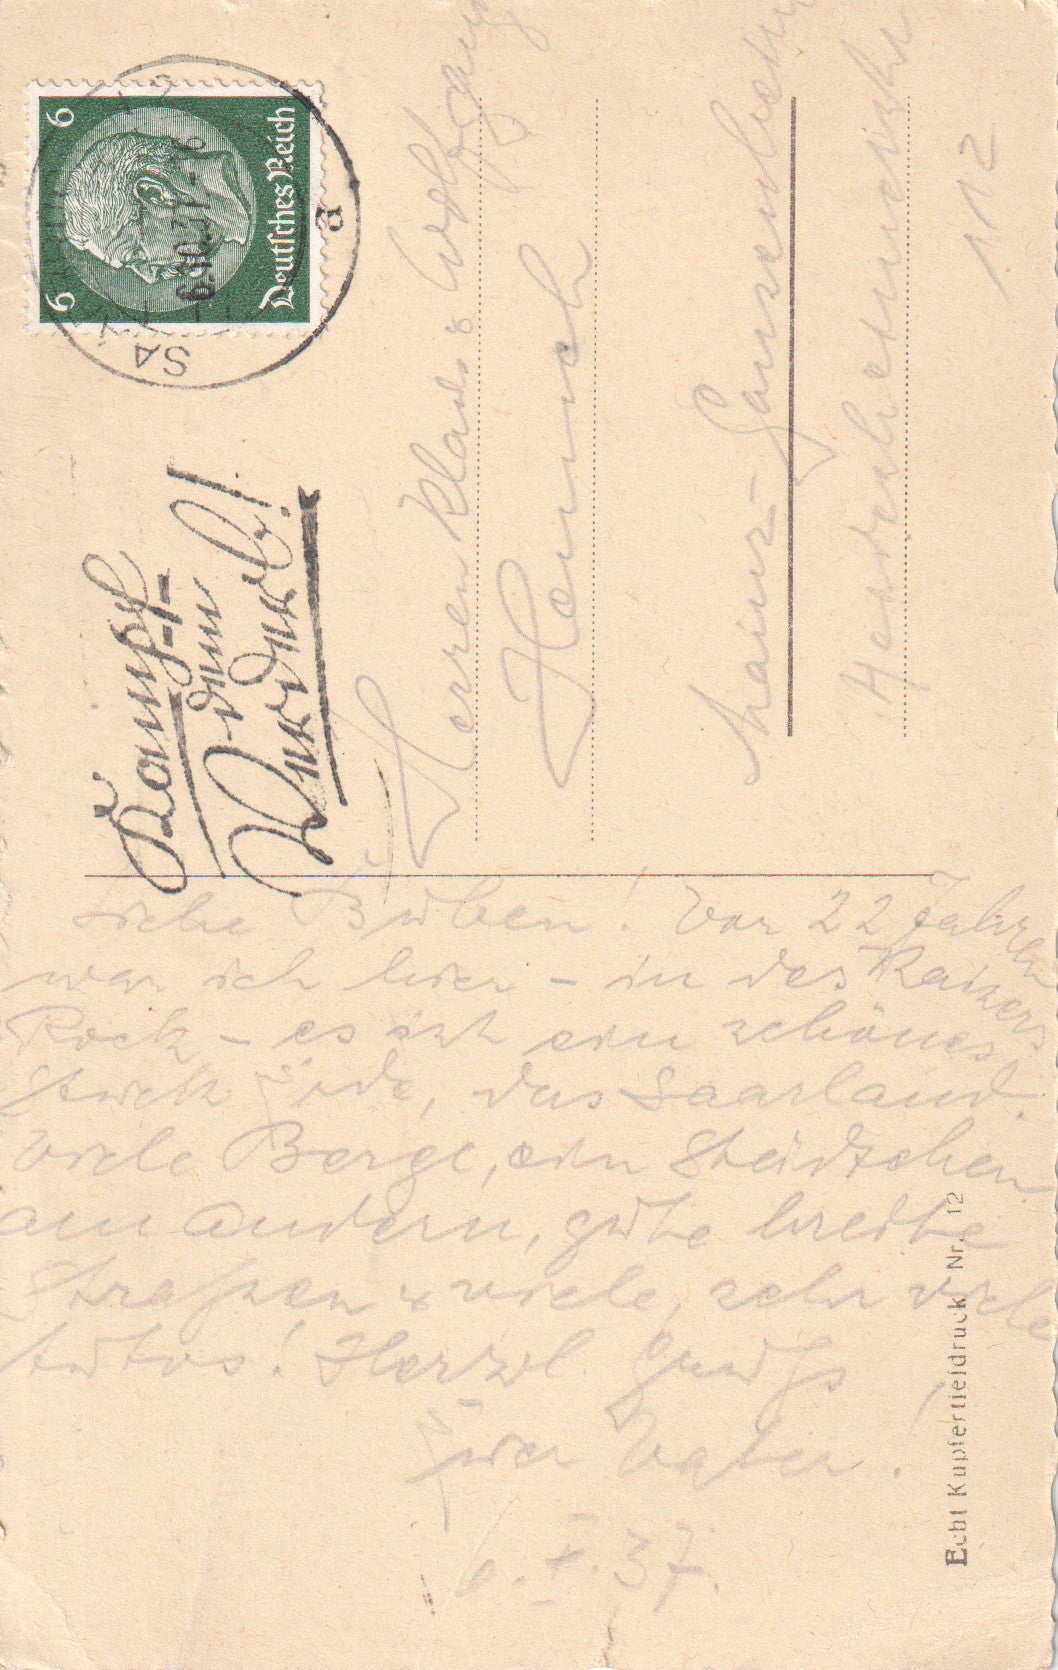 6 6
Deutsches Reich
-6.10.37.-
a
SA
Kampf
dem
Verderb!
Herren Klaus & Wolfgang
Hennch
Mainz-Gonsenheim
Heidesheimerstr
112
Liebe Buben! Vor 22 Jahren
war ich hier - in des Kaisers
Rock - es ist ein schönes
Stück Erde, das Saarland.
Viele Berge, ein Städtchen
am andern, gute breite
Straßen & viele, sehr viele
Autos! Herzl. Gruß
Euer Vater!
6.X.37.
Echt Kupfertiefdruck Nr. 12